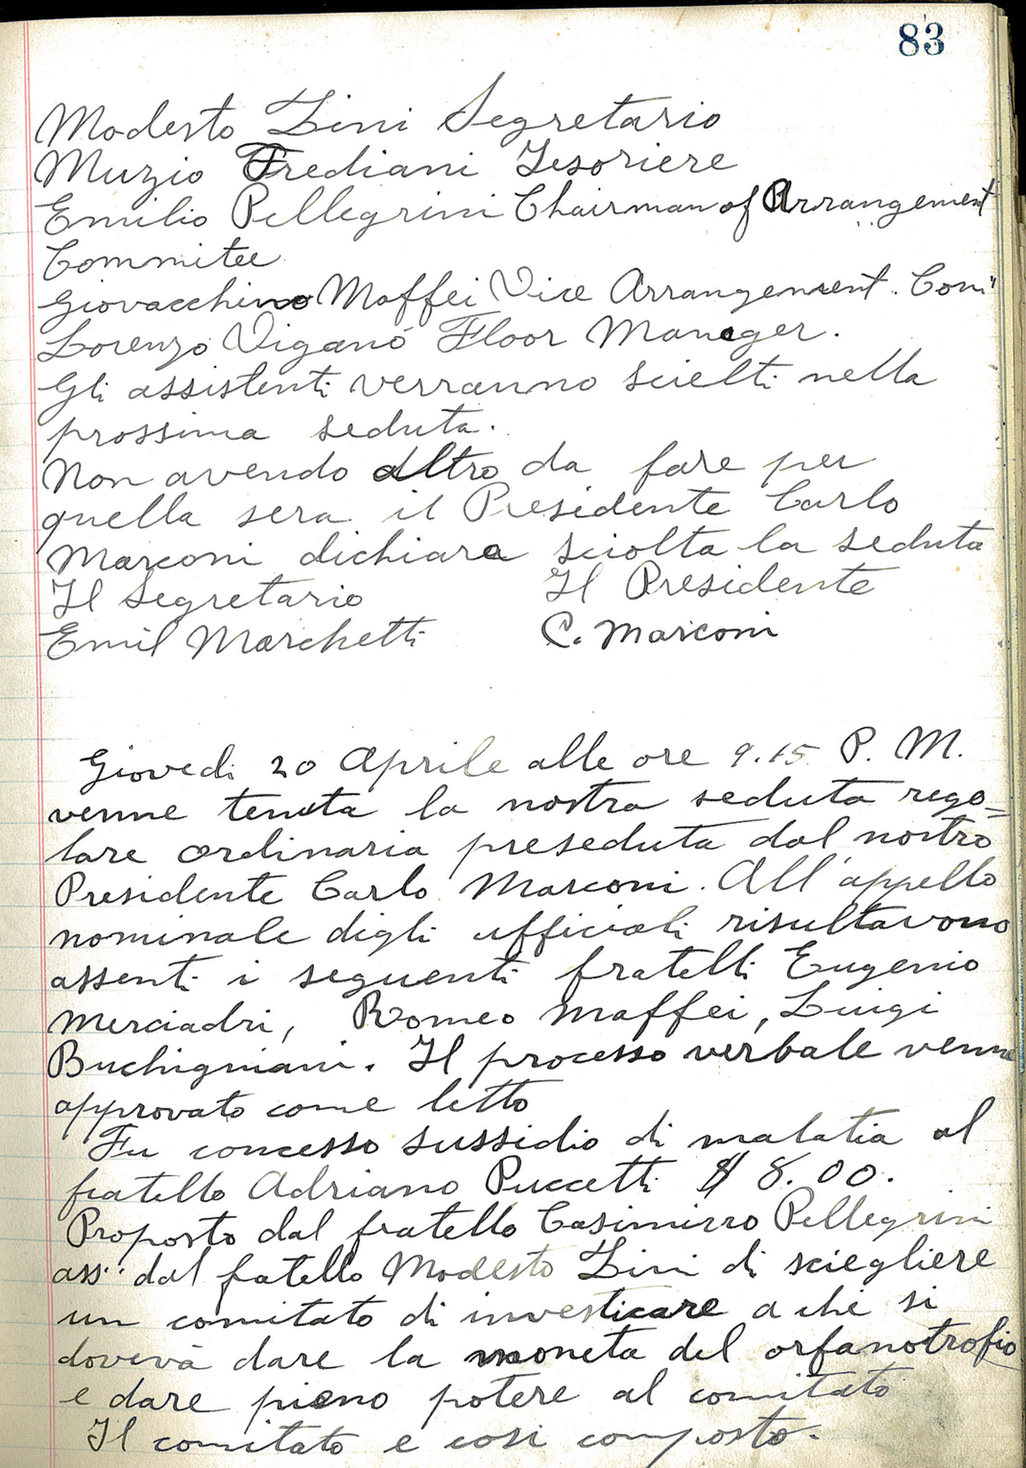 83
Modesto Lini Segretario
Muzio Frediani Tesoriere
Emilio Pellegrini Chairman of Arrangement
Commitee
Giovacchino Maffei Vice Arrangement. Com"
Lorenzo Viganó Floor Maneger.
Gli assistenti verranno scielti nella
prossima seduta.
Non avendo altro da fare per
quella sera il Presidente Carlo
Marconi dichiara sciolta la seduta
Il Segretario Il Presidente
Emil Marchetti C. Marconi
Giovedi 20 Aprile alle ore 9.15 P. M.
venne tenuta la nostra seduta rego=
lare ordinaria preseduta dal nostro
Presidente Carlo Marconi. All'appello
nominale digli ufficiali risultavono
assenti i seguenti fratelli Eugenio
Merciadri, Romeo Maffei, Luigi
Buchigniani. Il processo verbale venne
approvato come letto
Fu concesso sussidio di malatia al
fratello Adriano Puccetti $ 8.00.
Proposto dal fratello Casimirro Pellegrini
ass" dal fatello Modesto Lini di sciegliere
un comitato di investicare a chi si
dovevà dare la moneta del orfanotrofio
e dare pieno potere al comitato
Il comitato e cosi composto.